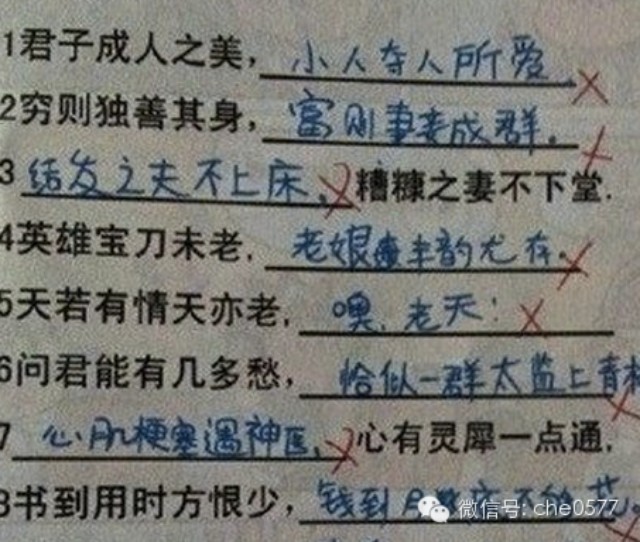 1君子成人之美,小人夺人所爱
2穷则独善其身,富则妻妾成群.
3 结发之夫不上床,糟糠之妻不下堂.
4英雄宝刀未老,老娘丰韵尤存.
5天若有情天亦老,噢,老天!
6问君能有几多愁,恰似一群太监上青
7 心肌梗塞遇神医,心有灵犀一点通.
8书到用时方恨少,钱到月
微信号: che0577